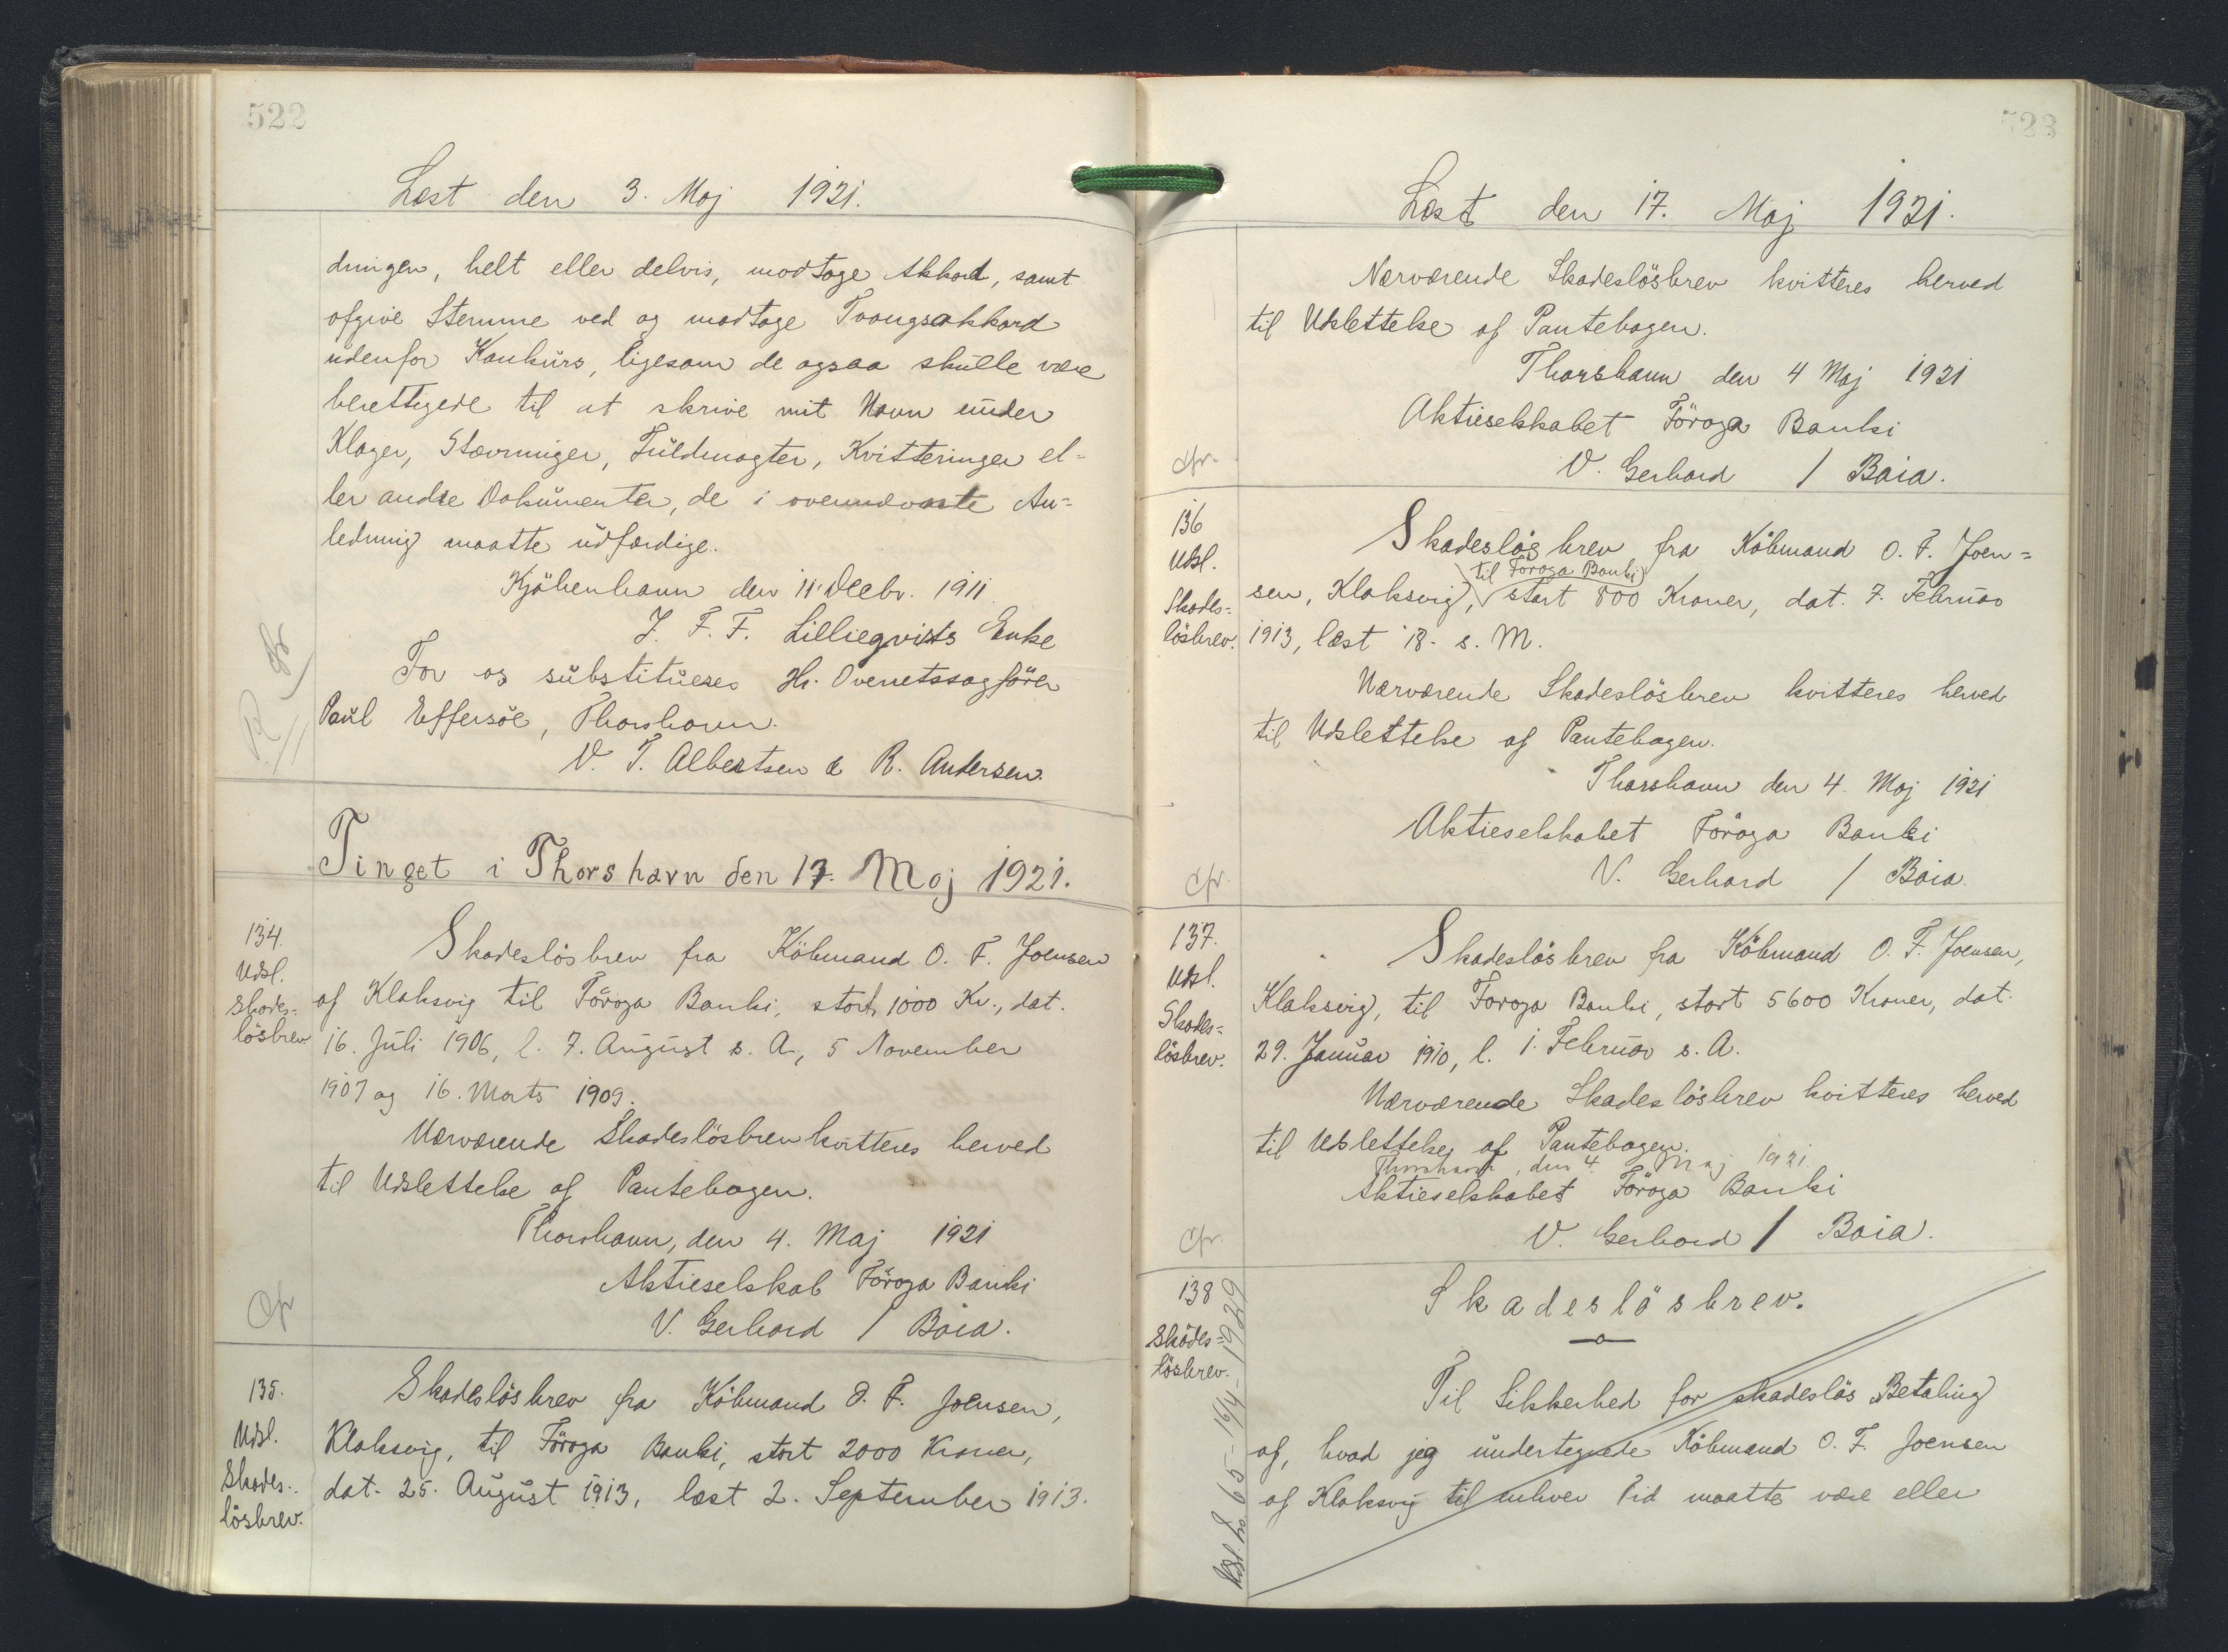 522
Læst den 3. Maj 1921.
dringen, helt eller delvis, modtage Akkord, samt
afgive Stemme ved og modtage Tvangsakkord
udenfor Konkurs, ligesom de ogsaa skulle være
berettigede til at skrive mit Navn under
Klager, Stævninger, Fuldmagter, Kvitteringer el-
ler andre Dokumenter, de i ovennævnte An-
ledning maatte udfærdige.
Kjöbenhavn den 11' Decbr. 1911
J. F. F. Lilliegvists Enke
For os substitueres Hr. Overretssagförer
Paul Effersöe, Thorshavn.
V. T. Albertsen & R. Andersen.
Tinget i Thorshavn den 17. Maj 1921.
134.
Udsl.
Skades-
lösbrev
Skadeslösbrev fra Köbmand O. F. Joensen
af Klaksvig til Föroya Banki, stort 1000 Kr., dat.
16. Juli 1906, l. 7. August s. A., 5 November
1907 og 16. Marts 1909.
Nærværende Skadeslösbrev kvitteres herved
til Udslettelse af Pantebogen.
Thorshavn, den 4. Maj 1921
Aktieselskab Föroya Banki
V. Gerhard / Baia.
cfr
135.
Udsl.
Skades-
lösbrev.
Skadeslösbrev fra Köbmand O. F. Joensen,
Klaksvig, til Föroya Banki, stort 2000 Kroner,
dat. 25. August 1913, læst 2. September 1913.
523
Læst den 17. Maj 1921.
Nærværende Skadeslösbrev kvitteres herved
til Udslettelse af Pantebogen.
Thorshavn den 4 Maj 1921
Aktieselskabet Föroya Banki
V. Gerhard / Baia.
cfr.
136
Udsl.
Skades-
lösbrev.
Skadeslösbrev fra Köbmand O. F. Joen-
til Föroya Banki
sen, Klaksvig, stort 800 Kroner, dat. 7. Februar
1913, læst 18. s. M.
Nærværende Skadeslösbrev kvitteres herved
til Udslettelse af Pantebogen.
Thorshavn den 4. Maj 1921
Aktieselskabet Föroya Banki
V. Gerhard / Baia.
cfr.
137.
Udsl.
Skades-
lösbrev.
Skadeslösbrev fra Köbmand O. F. Joensen,
Klaksvig, til Föroya Banki, stort 5600 Kroner, dat.
29. Januar 1910, l. 1. Februar s. A.
Nærværende Skadeslösbrev kvitteres herved
til Udslettelse af Pantebogen.
Thorshavn, den 4. Maj 1921.
Aktieselskabet Föroya Banki
V. Gerhard / Baia.
cfr.
138
Skades-
lösbrev.
Udsl. No 65 - 16/4 - 1929
Skadeslösbrev.
Til Sikkerhed for skadeslös Betaling
af, hvad jeg undertegnede Köbmand O. F. Joensen
af Klaksvig til enhver Tid maatte være eller